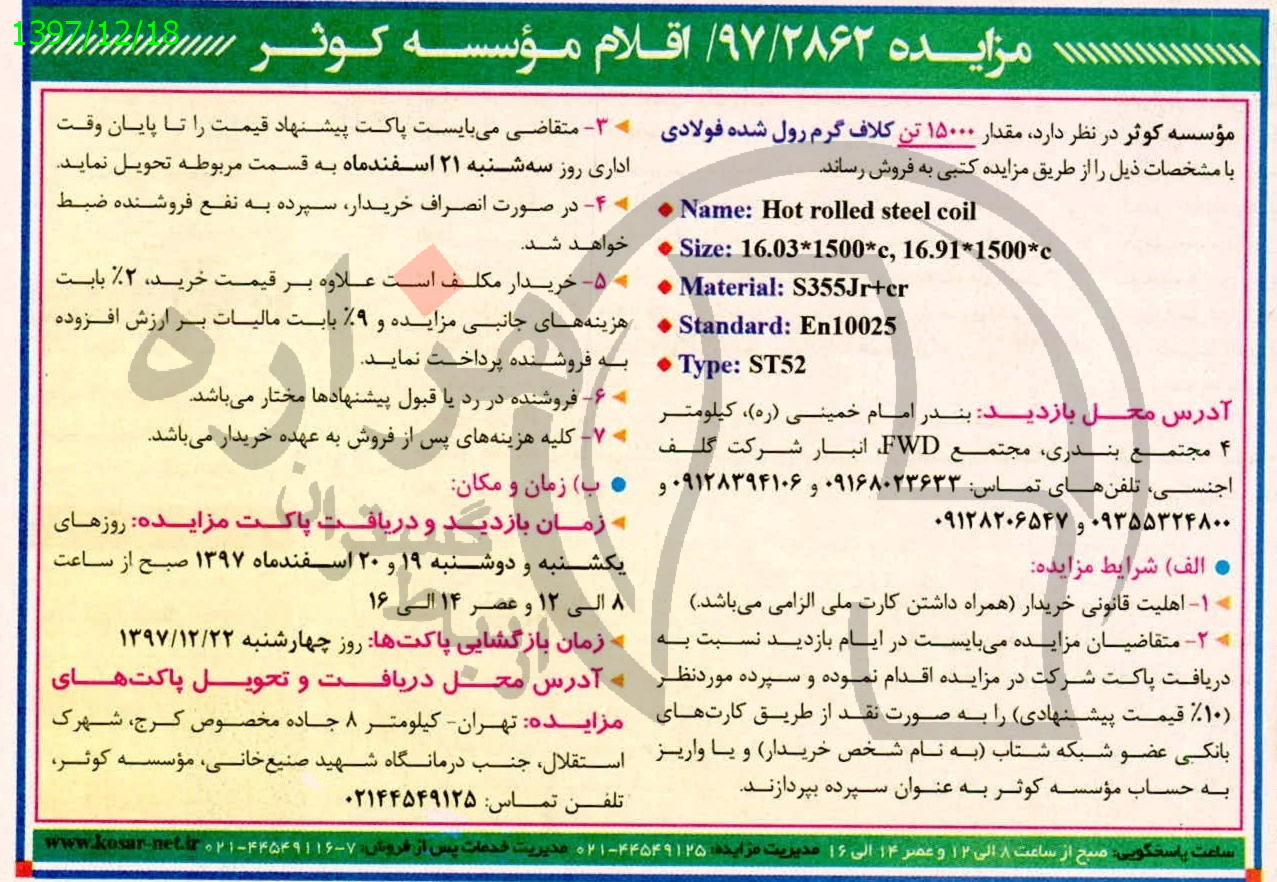 1397/12/18
مزایده ۹۷/۲۸۶۲/ اقلام مؤسسه کوثر
مؤسسه کوثر در نظر دارد، مقدار ۱۵۰۰۰ تن کلاف گرم رول شده فولادی
با مشخصات ذیل را از طریق مزایده کتبی به فروش رساند.
Name: Hot rolled steel coil
Size: 16.03*1500*c, 16.91*1500*c
Material: S355Jr+cr
Standard: En10025
Type: ST52
آدرس محل بازدید: بندر امام خمینی (ره)، کیلومتر
۴ مجتمع بندری، مجتمع FWD، انبار شرکت گلف
اجنسی، تلفن‌های تماس: ۰۹۱۶۸۰۲۳۶۳۳ و ۰۹۱۲۸۳۹۴۱۰۶ و
۰۹۳۵۵۳۲۴۸۰۰ و ۰۹۱۲۸۲۰۶۵۴۷
الف) شرایط مزایده:
۱- اهلیت قانونی خریدار (همراه داشتن کارت ملی الزامی می‌باشد.)
۲- متقاضیان مزایده می‌بایست در ایام بازدید نسبت به
دریافت پاکت شرکت در مزایده اقدام نموده و سپرده موردنظر
(۱۰٪ قیمت پیشنهادی) را به صورت نقد از طریق کارت‌های
بانکی عضو شبکه شتاب (به نام شخص خریدار) و یا واریز
به حساب مؤسسه کوثر به عنوان سپرده بپردازند.
۳- متقاضی می‌بایست پاکت پیشنهاد قیمت را تا پایان وقت
اداری روز سه‌شنبه ۲۱ اسفندماه به قسمت مربوطه تحویل نماید.
۴- در صورت انصراف خریدار، سپرده به نفع فروشنده ضبط
خواهد شد.
۵- خریدار مکلف است علاوه بر قیمت خرید، ۲٪ بابت
هزینه‌های جانبی مزایده و ۹٪ بابت مالیات بر ارزش افزوده
به فروشنده پرداخت نماید.
۶- فروشنده در رد یا قبول پیشنهادها مختار می‌باشد.
۷- کلیه هزینه‌های پس از فروش به عهده خریدار می‌باشد.
ب) زمان و مکان:
زمان بازدید و دریافت پاکت مزایده: روزهای
یکشنبه و دوشنبه ۱۹ و ۲۰ اسفندماه ۱۳۹۷ صبح از ساعت
۸ الی ۱۲ و عصر ۱۴ الی ۱۶
زمان بازگشایی پاکت‌ها: روز چهارشنبه ۱۳۹۷/۱۲/۲۲
آدرس محل دریافت و تحویل پاکت‌های
مزایده: تهران- کیلومتر ۸ جاده مخصوص کرج، شهرک
استقلال، جنب درمانگاه شهید صنیع‌خانی، مؤسسه کوثر،
تلفن تماس: ۰۲۱۴۴۵۴۹۱۲۵
هزاره
گستران
ارتباط
ساعت پاسخگویی: صبح از ساعت ۸ الی ۱۲ و عصر ۱۴ الی ۱۶ مدیریت مزایده: ۴۴۵۴۹۱۲۵-۰۲۱ مدیریت خدمات پس از فروش: ۷-۴۴۵۴۹۱۱۶-۰۲۱ www.kosar-net.ir